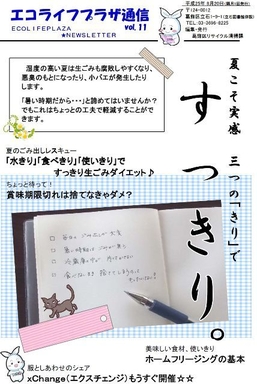 エコライフプラザ通信
ECOLIFEPLAZA
★NEWSLETTER
vol.11
〒124-0012
湿度の高い夏は生ごみも腐敗しやすくなり、
悪臭のもとになったり、小バエが発生したり
します。
「暑い時期だから・・・」と諦めてはいませんか？
でもこれはちょっとの工夫で軽減することがで
きます。
夏こそ実感 三つの「きり」で
すっきり。
夏のごみ出しレスキュー
「水きり」「食べきり」「使いきり」で
すっきり生ごみダイエット♪
ちょっと待って！
賞味期限切れは捨てなきゃダメ？
美味しい食材、使いきり
ホームフリージングの基本
服としあわせのシェア
xChange（エクスチェンジ）もうすぐ開催☆☆